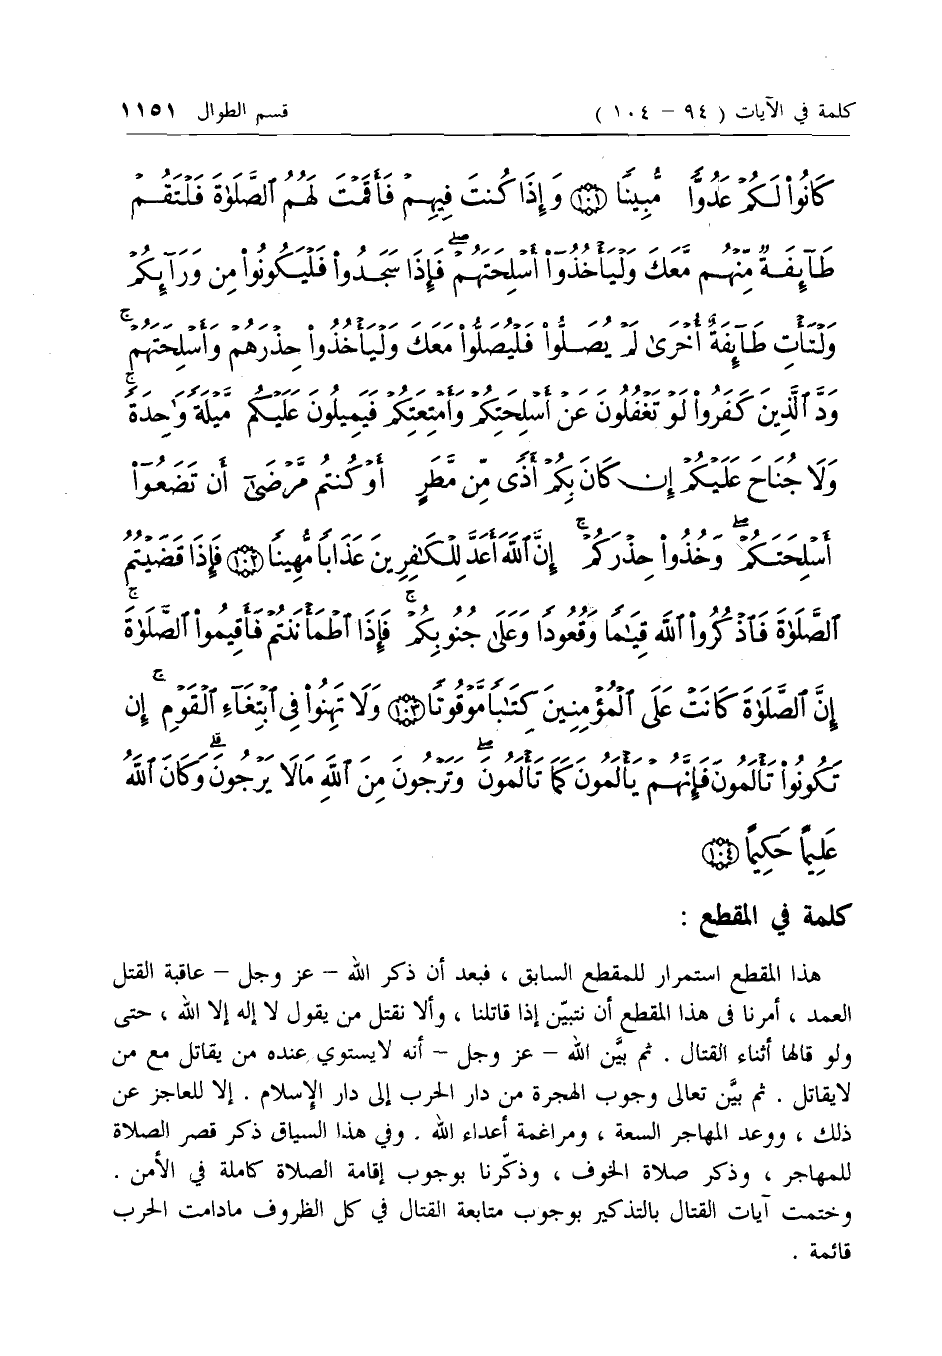 كلمة في الآيات ( ٩٤ – ١٠٤ ) قسم الطوال ١١٥١
كَانُوا۟ لَكُمْ عَدُوًّا مُّبِينًا ﴿١٠١﴾ وَإِذَا كُنتَ فِيهِمْ فَأَقَمْتَ لَهُمُ ٱلصَّلَوٰةَ فَلْتَقُمْ
طَآئِفَةٌ مِّنْهُم مَّعَكَ وَلْيَأْخُذُوٓا۟ أَسْلِحَتَهُمْ ۖ فَإِذَا سَجَدُوا۟ فَلْيَكُونُوا۟ مِن وَرَآئِكُمْ
وَلْتَأْتِ طَآئِفَةٌ أُخْرَىٰ لَمْ يُصَلُّوا۟ فَلْيُصَلُّوا۟ مَعَكَ وَلْيَأْخُذُوا۟ حِذْرَهُمْ وَأَسْلِحَتَهُمْ ۗ
وَدَّ ٱلَّذِينَ كَفَرُوا۟ لَوْ تَغْفُلُونَ عَنْ أَسْلِحَتِكُمْ وَأَمْتِعَتِكُمْ فَيَمِيلُونَ عَلَيْكُم مَّيْلَةً وَٰحِدَةً ۚ
وَلَا جُنَاحَ عَلَيْكُمْ إِن كَانَ بِكُمْ أَذًى مِّن مَّطَرٍ أَوْ كُنتُم مَّرْضَىٰٓ أَن تَضَعُوٓا۟
أَسْلِحَتَكُمْ ۖ وَخُذُوا۟ حِذْرَكُمْ ۗ إِنَّ ٱللَّهَ أَعَدَّ لِلْكَٰفِرِينَ عَذَابًا مُّهِينًا ﴿١٠٢﴾ فَإِذَا قَضَيْتُمُ
ٱلصَّلَوٰةَ فَٱذْكُرُوا۟ ٱللَّهَ قِيَٰمًا وَقُعُودًا وَعَلَىٰ جُنُوبِكُمْ ۚ فَإِذَا ٱطْمَأْنَنتُمْ فَأَقِيمُوا۟ ٱلصَّلَوٰةَ ۚ
إِنَّ ٱلصَّلَوٰةَ كَانَتْ عَلَى ٱلْمُؤْمِنِينَ كِتَٰبًا مَّوْقُوتًا ﴿١٠٣﴾ وَلَا تَهِنُوا۟ فِى ٱبْتِغَآءِ ٱلْقَوْمِ ۖ إِن
تَكُونُوا۟ تَأْلَمُونَ فَإِنَّهُمْ يَأْلَمُونَ كَمَا تَأْلَمُونَ ۖ وَتَرْجُونَ مِنَ ٱللَّهِ مَا لَا يَرْجُونَ ۗ وَكَانَ ٱللَّهُ
عَلِيمًا حَكِيمًا ﴿١٠٤﴾
كلمة في المقطع :
هذا المقطع استمرار للمقطع السابق ، فبعد أن ذكر الله – عز وجل – عاقبة القتل
العمد ، أمرنا فى هذا المقطع أن نتبيّن إذا قاتلنا ، وألا نقتل من يقول لا إله إلا الله ، حتى
ولو قالها أثناء القتال . ثم بيَّن الله – عز وجل – أنه لايستوي عنده من يقاتل مع من
لايقاتل . ثم بيَّن تعالى وجوب الهجرة من دار الحرب إلى دار الإسلام . إلا للعاجز عن
ذلك ، ووعد المهاجر السعة ، ومراغمة أعداء الله . وفي هذا السياق ذكر قصر الصلاة
للمهاجر ، وذكر صلاة الخوف ، وذكّرنا بوجوب إقامة الصلاة كاملة في الأمن .
وختمت آيات القتال بالتذكير بوجوب متابعة القتال في كل الظروف مادامت الحرب
قائمة .